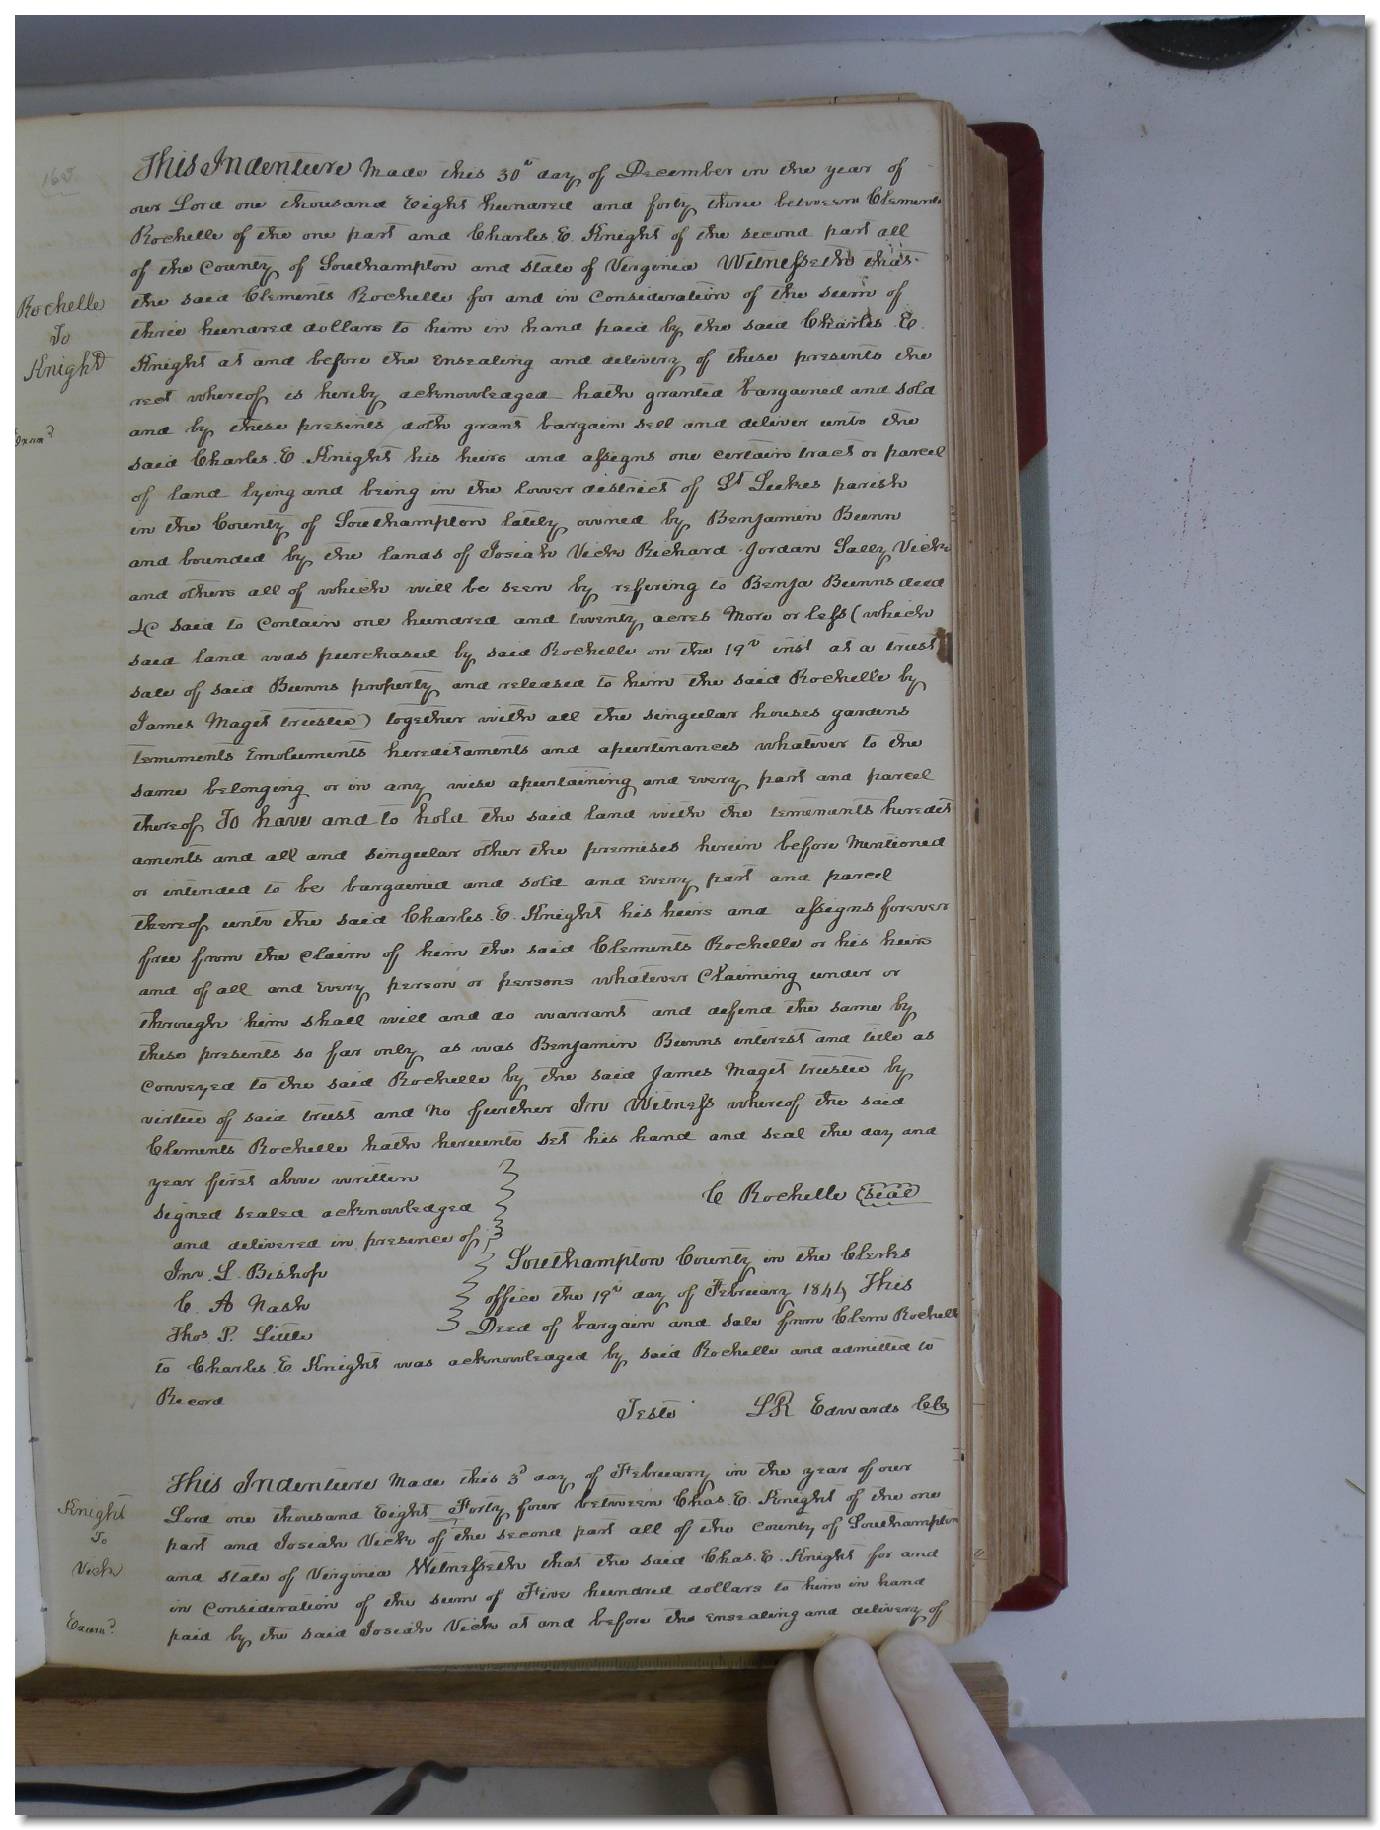 165
This Indenture Made this 30th day of December in the year of
our Lord one thousand Eight hundred and forty three between Clements
Rochelle of the one part and Charles. E. Knight of the second part all
of the County of Southampton and state of Virginia Witnesseth that
Rochelle
To
Knight
Examd
the said Clements Rochelle for and in Consideration of the sum of
three hundred dollars to him in hand paid by the said Charles. E.
Knight at and before the ensealing and delivery of these presents the
rect whereof is hereby acknowledged hath granted bargained and sold
and by these presents doth grant bargain sell and deliver unto the
said Charles. E. Knight his heirs and assigns one certain tract or parcel
of land lying and being in the lower district of St Lukes parish
in the County of Southampton lately owned by Benjamin Bunn
and bounded by the lands of Josiah Vick Richard Jordan Sally Vick
and others all of which will be seen by refering to Benja Bunns deed
&C said to Contain one hundred and twenty acres More or less (which
said land was purchased by said Rochelle on the 19th inst at a trust
sale of said Bunns property and released to him the said Rochelle by
James Maget trustee) together with all the singular houses gardens
temements Emoluments hereditaments and apurtinances whatever to the
same belonging or in any wise apurtaining and every part and parcel
thereof To have and to hold the said land with the temements heredit
aments and all and singular other the premises herein before Mentioned
or intended to be bargained and sold and Every part and parcel
thereof unto the said Charles. E. Knight his heirs and assigns forever
free from the claim of him the said Clements Rochelle or his heirs
and of all and Every person or persons whatever Claiming under or
through him shall will and do warrant and defend the same by
these presents so far only as was Benjamin Bunns interest and title as
Conveyed to the said Rochelle by the said James Maget trustee by
virtue of said trust and No further In Witness whereof the said
Clements Rochelle hath hereunto set his hand and seal the day and
year first above written
C Rochelle seal
signed sealed acknowledged
and delivered in presence of
Jno. L. Bishop
C. A Nash
Thos P. Little
Southampton County in the Clerks
office the 19th day of February 1844 This
Deed of bargain and sale from Clem Rochelle
to Charles. E Knight was acknowledged by said Rochelle and admitted to
Record
Teste LR Edwards Clk
Knight
To
Vick
Examd
This Indenture Made this 3d day of February in the year of our
Lord one thousand Eight Forty four between Chas. E. Knight of the one
part and Josiah Vick of the second part all of the County of Southampton
and state of Virginia Witnesseth that the said Chas. E. Knight for and
in Consideration of the sum of Five hundred dollars to him in hand
paid by the said Josiah Vick at and before the ensealing and delivery of